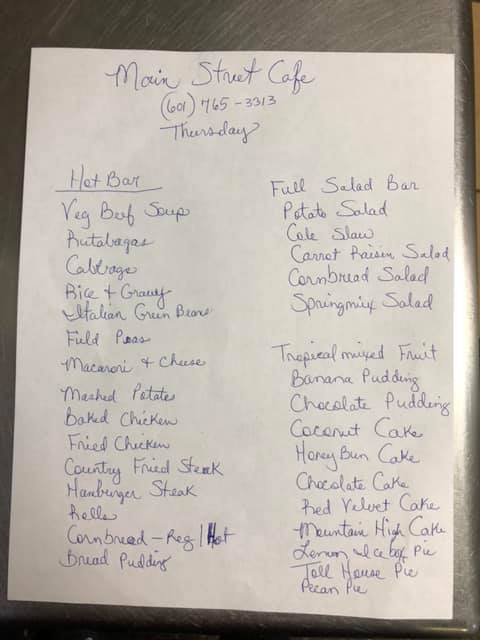 Main Street Cafe
(601) 765-3313
Thursday
Hot Bar
Veg Beef Soup
Rutabagas
Cabbage
Rice & Gravy
Italian Green Beans
Field Peas
Macaroni & Cheese
Mashed Potato
Baked Chicken
Fried Chicken
Country Fried Steak
Hamburger Steak
Rolls
Cornbread - Reg / Hot
Bread Pudding
Full Salad Bar
Potato Salad
Cole Slaw
Carrot Raisin Salad
Cornbread Salad
Springmix Salad
Tropical mixed Fruit
Banana Pudding
Chocolate Pudding
Coconut Cake
Honey Bun Cake
Chocolate Cake
Red Velvet Cake
Mountain High Cake
Lemon Ice box Pie
Toll House Pie
Pecan Pie